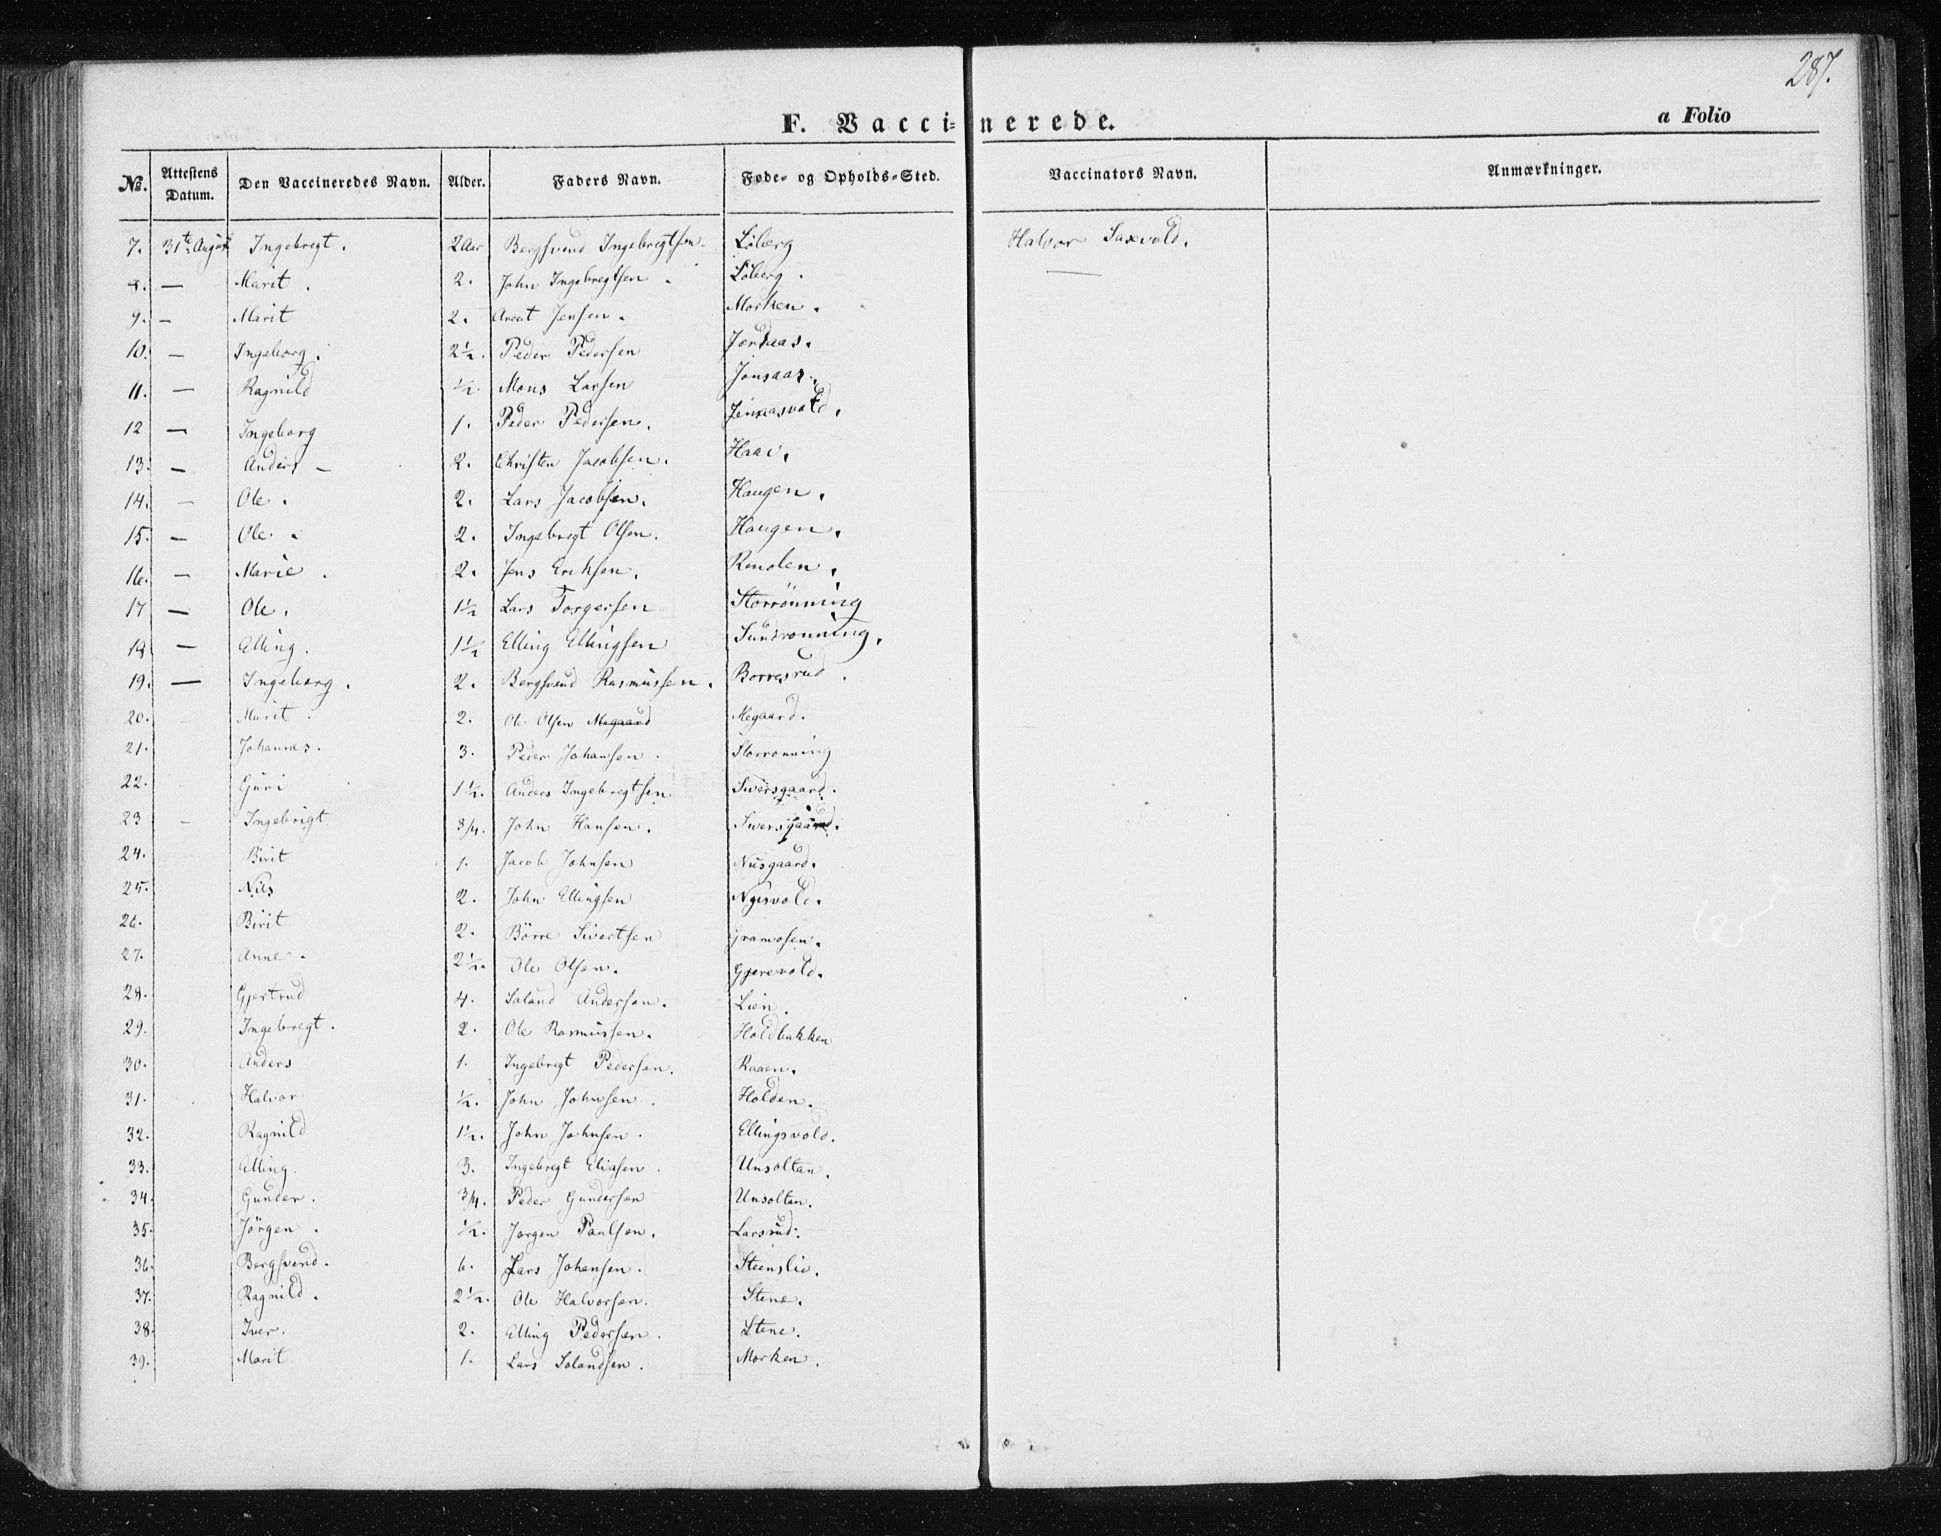 287.
F. Vaccinerede.
a Folio
No. Attestens Datum. Den Vaccineredes Navn. Alder. Faders Navn. Føde- og Opholds-Sted. Vaccinators Navn. Anmærkninger.
7. 31te August Ingebregt. 2 Aar Bergsvend Ingebregtsen. Löberg Halvor Saxevold.
8. — Marit. 2. John Ingebregtsen. Löberg.
9. — Marit 2. Arent Jensen. Morken.
10. — Ingeborg. 2½. Peder Pedersen
11. — Ragnild ½. Mons Larsen Jonsaas.
12 — Ingeborg 1. Peder Pedersen.
13. — Anders — 2. Christen Jacobsen. Haae.
14. — Ole. 2. Lars Jacobsen. Haugen.
15. — Ole. 2. Ingebregt Olsen. Haugen.
16. — Marie. 2. Jens Eriksen. Renolen.
17 — Ole. 1½ Lars Torgersen Storrönning
18 — Elling. 1½ Elling Ellingsen Sundronning.
19. — Ingeborg. 2. Bergsvend Rasmussen. Borresrud.
20. Marit. 2. Ole Olsen Megaard Megaard.
21. Johannes. 3. Peder Johansen. Storronning
22. Guri 1½. Anders Ingebregtsen Siversgaard.
23 — Ingebrigt 3/4. John Hansen. Siversgaard.
24. Birit 1. Jacob Johnsen Nusgaard.
25. Nils 2. John Ellingsen Nysvold.
26. Birit 2. Börre Sivertsen Gramosen.
27. Anne. 2½. Ole Olsen. Gjerevold.
28. Gjertrud 4. Saland Andersen. Lien.
29. Ingebregt. 2. Ole Rasmussen. Holdbakken
30. Anders 1. Ingebregt Pedersen. Raaen.
31. Halvor ½. John Johnsen. Holden.
32. Ragnild 1½. John Johnsen. Ellingsvold.
33. Elling. 3. Ingebregt Eliasen. Unsoltan.
34. Gunder. 3/4. Peder Gundersen Unsoltan.
35. Jörgen. ½. Jorgen Paulsen. Larsrud.
36. Bergsvend. 6. Lars Johansen. Steenslie.
37. Ragnild. 2½. Ole Halvorsen. Stene.
38. Iver. 2. Elling Pedersen. Stene.
39. Marit 1. Lars Salandsen. Morken.